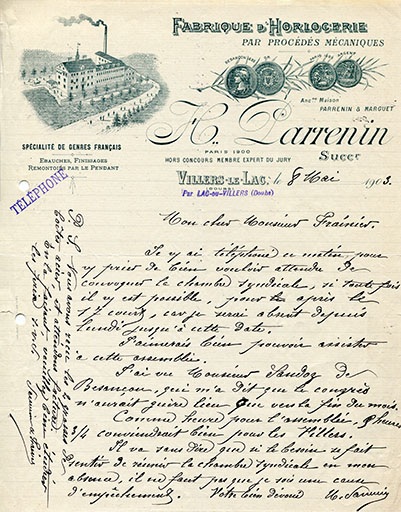 FABRIQUE D'HORLOGERIE
PAR PROCÉDÉS MÉCANIQUES
Ancne Maison
PARRENIN & MARGUET
H. Parrenin
Succr
PARIS 1900
HORS CONCOURS MEMBRE EXPERT DU JURY
SPÉCIALITÉ DE GENRES FRANÇAIS
EBAUCHES, FINISSAGES
REMONTOIRS PAR LE PENDANT
TÉLÉPHONE
VILLERS-LE-LAC, le 8 Mai 1903.
(DOUBS)
Par LAC-ou-VILLERS (Doubs)
Mon cher Monsieur Frainier.
Je v/ ai téléphoné ce matin pour
v/ prier de bien vouloir attendre de
convoquer la chambre syndicale, si toute fois
il v/ est possible, pour après le
17 court, car je serai absent depuis
lundi jusqu'à cette date.
J'aimerais bien pouvoir assister
à cette assemblée.
J'ai vu Monsieur Sandoz de
Besançon, qui m'a dit que le congrès
n'aurait guère lieu que vers la fin du mois.
Comme heure pour l'assemblée 9 heures
3/4 conviendrait bien pour les Villers.
Il va sans dire que si le besoin se fait
sentir de réunir la chambre syndicale en mon
absence, il ne faut pas que je sois une cause
d'empêchement. Votre bien dévoué H. Parrenin
P.S. Nous avons reçu les 2 grosses de